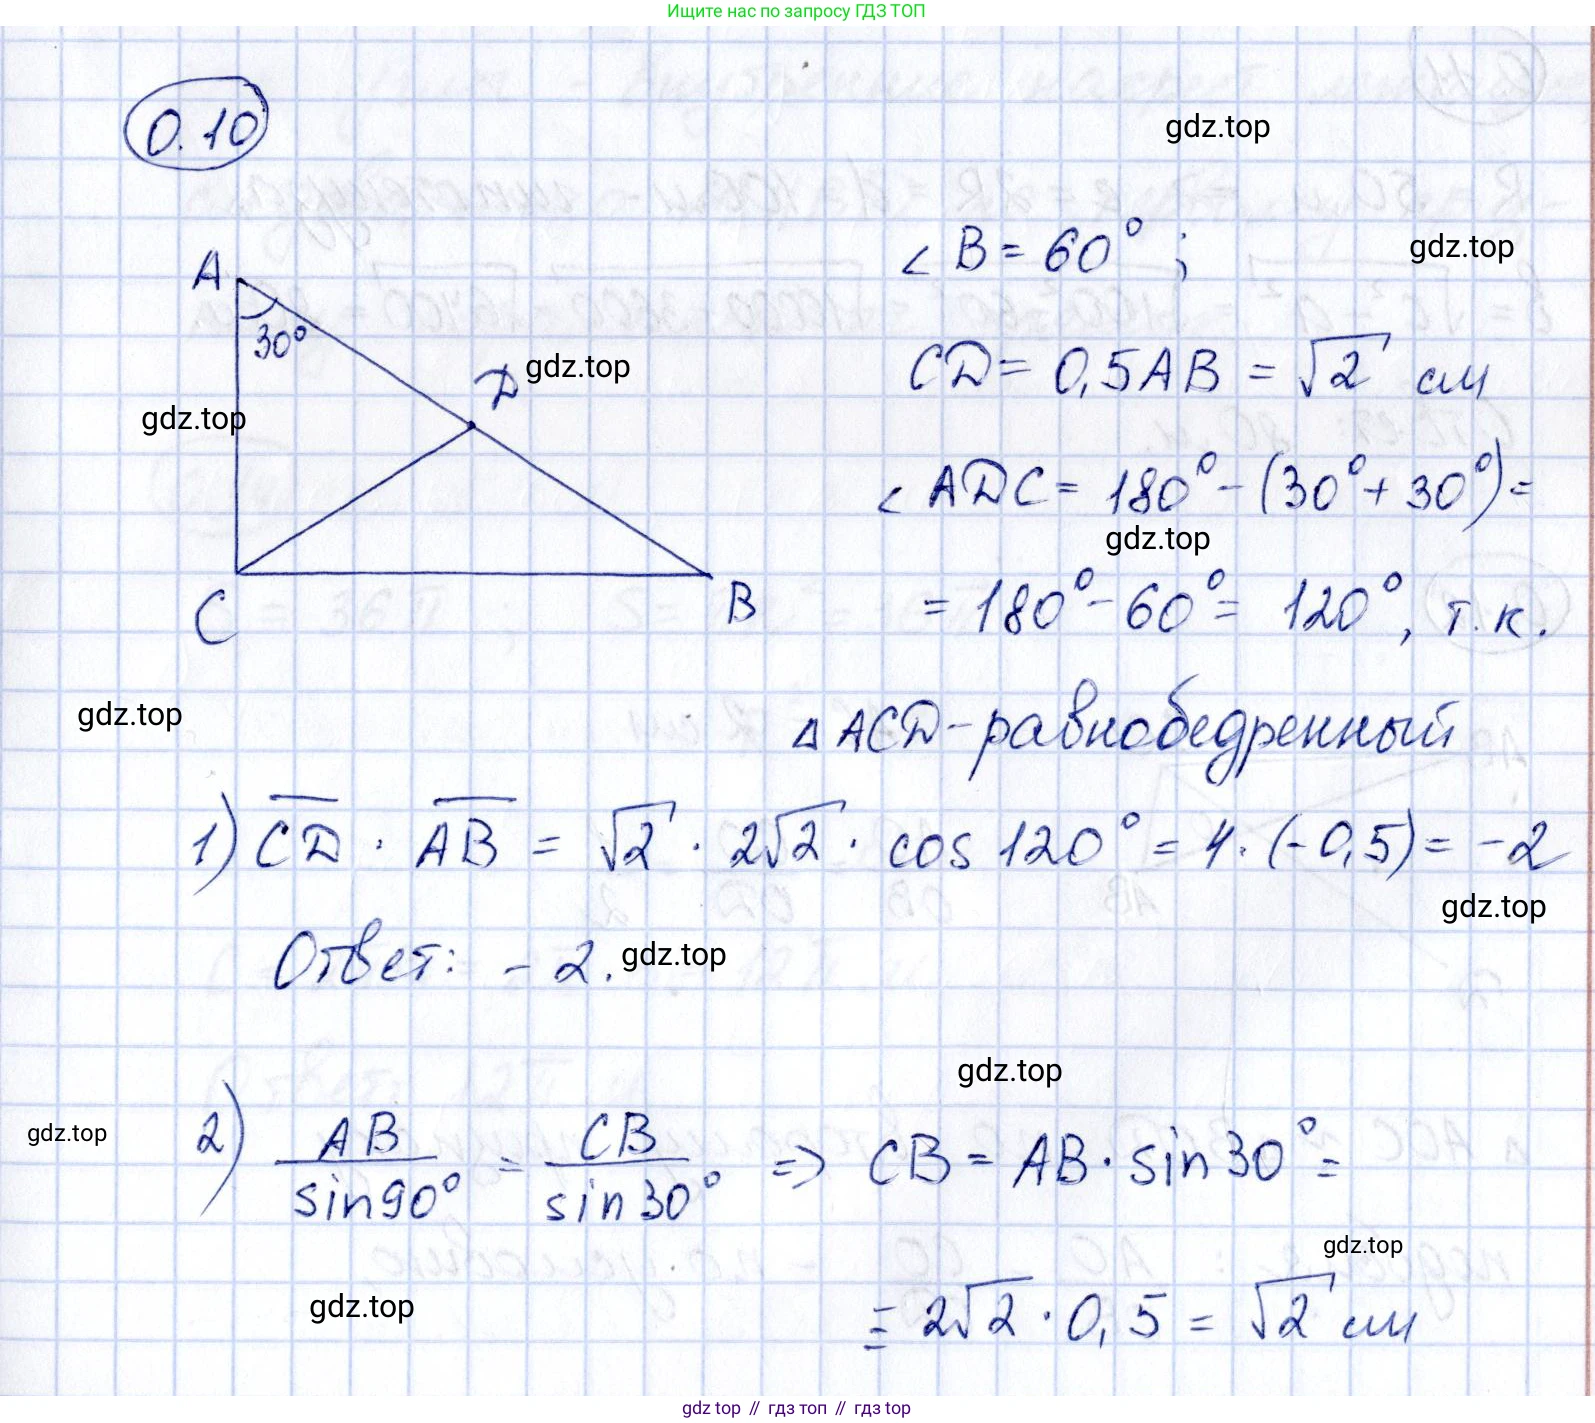 Ищите нас по запросу ГДЗ ТОП
0.10
gdz.top
∠ B = 60° ;
gdz.top
A
30°
CD = 0,5AB = √2 см
D
gdz.top
gdz.top
∠ ADC = 180° - (30° + 30°) =
gdz.top
= 180° - 60° = 120°, т.к.
C
B
gdz.top
Δ ACD - равнобедренный
1) CD · AB = √2 · 2√2 · cos 120° = 4 · (-0,5) = -2
gdz.top
Ответ: -2.
gdz.top
gdz.top
gdz.top
2) AB/sin90° = CB/sin30° => CB = AB · sin30° =
gdz.top
gdz.top
= 2√2 · 0,5 = √2 см
gdz.top // гдз топ // гдз top